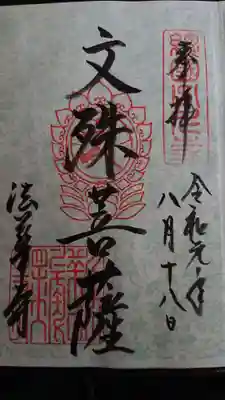 奉拝
令和元年
八月十八日
文殊菩薩
法華寺